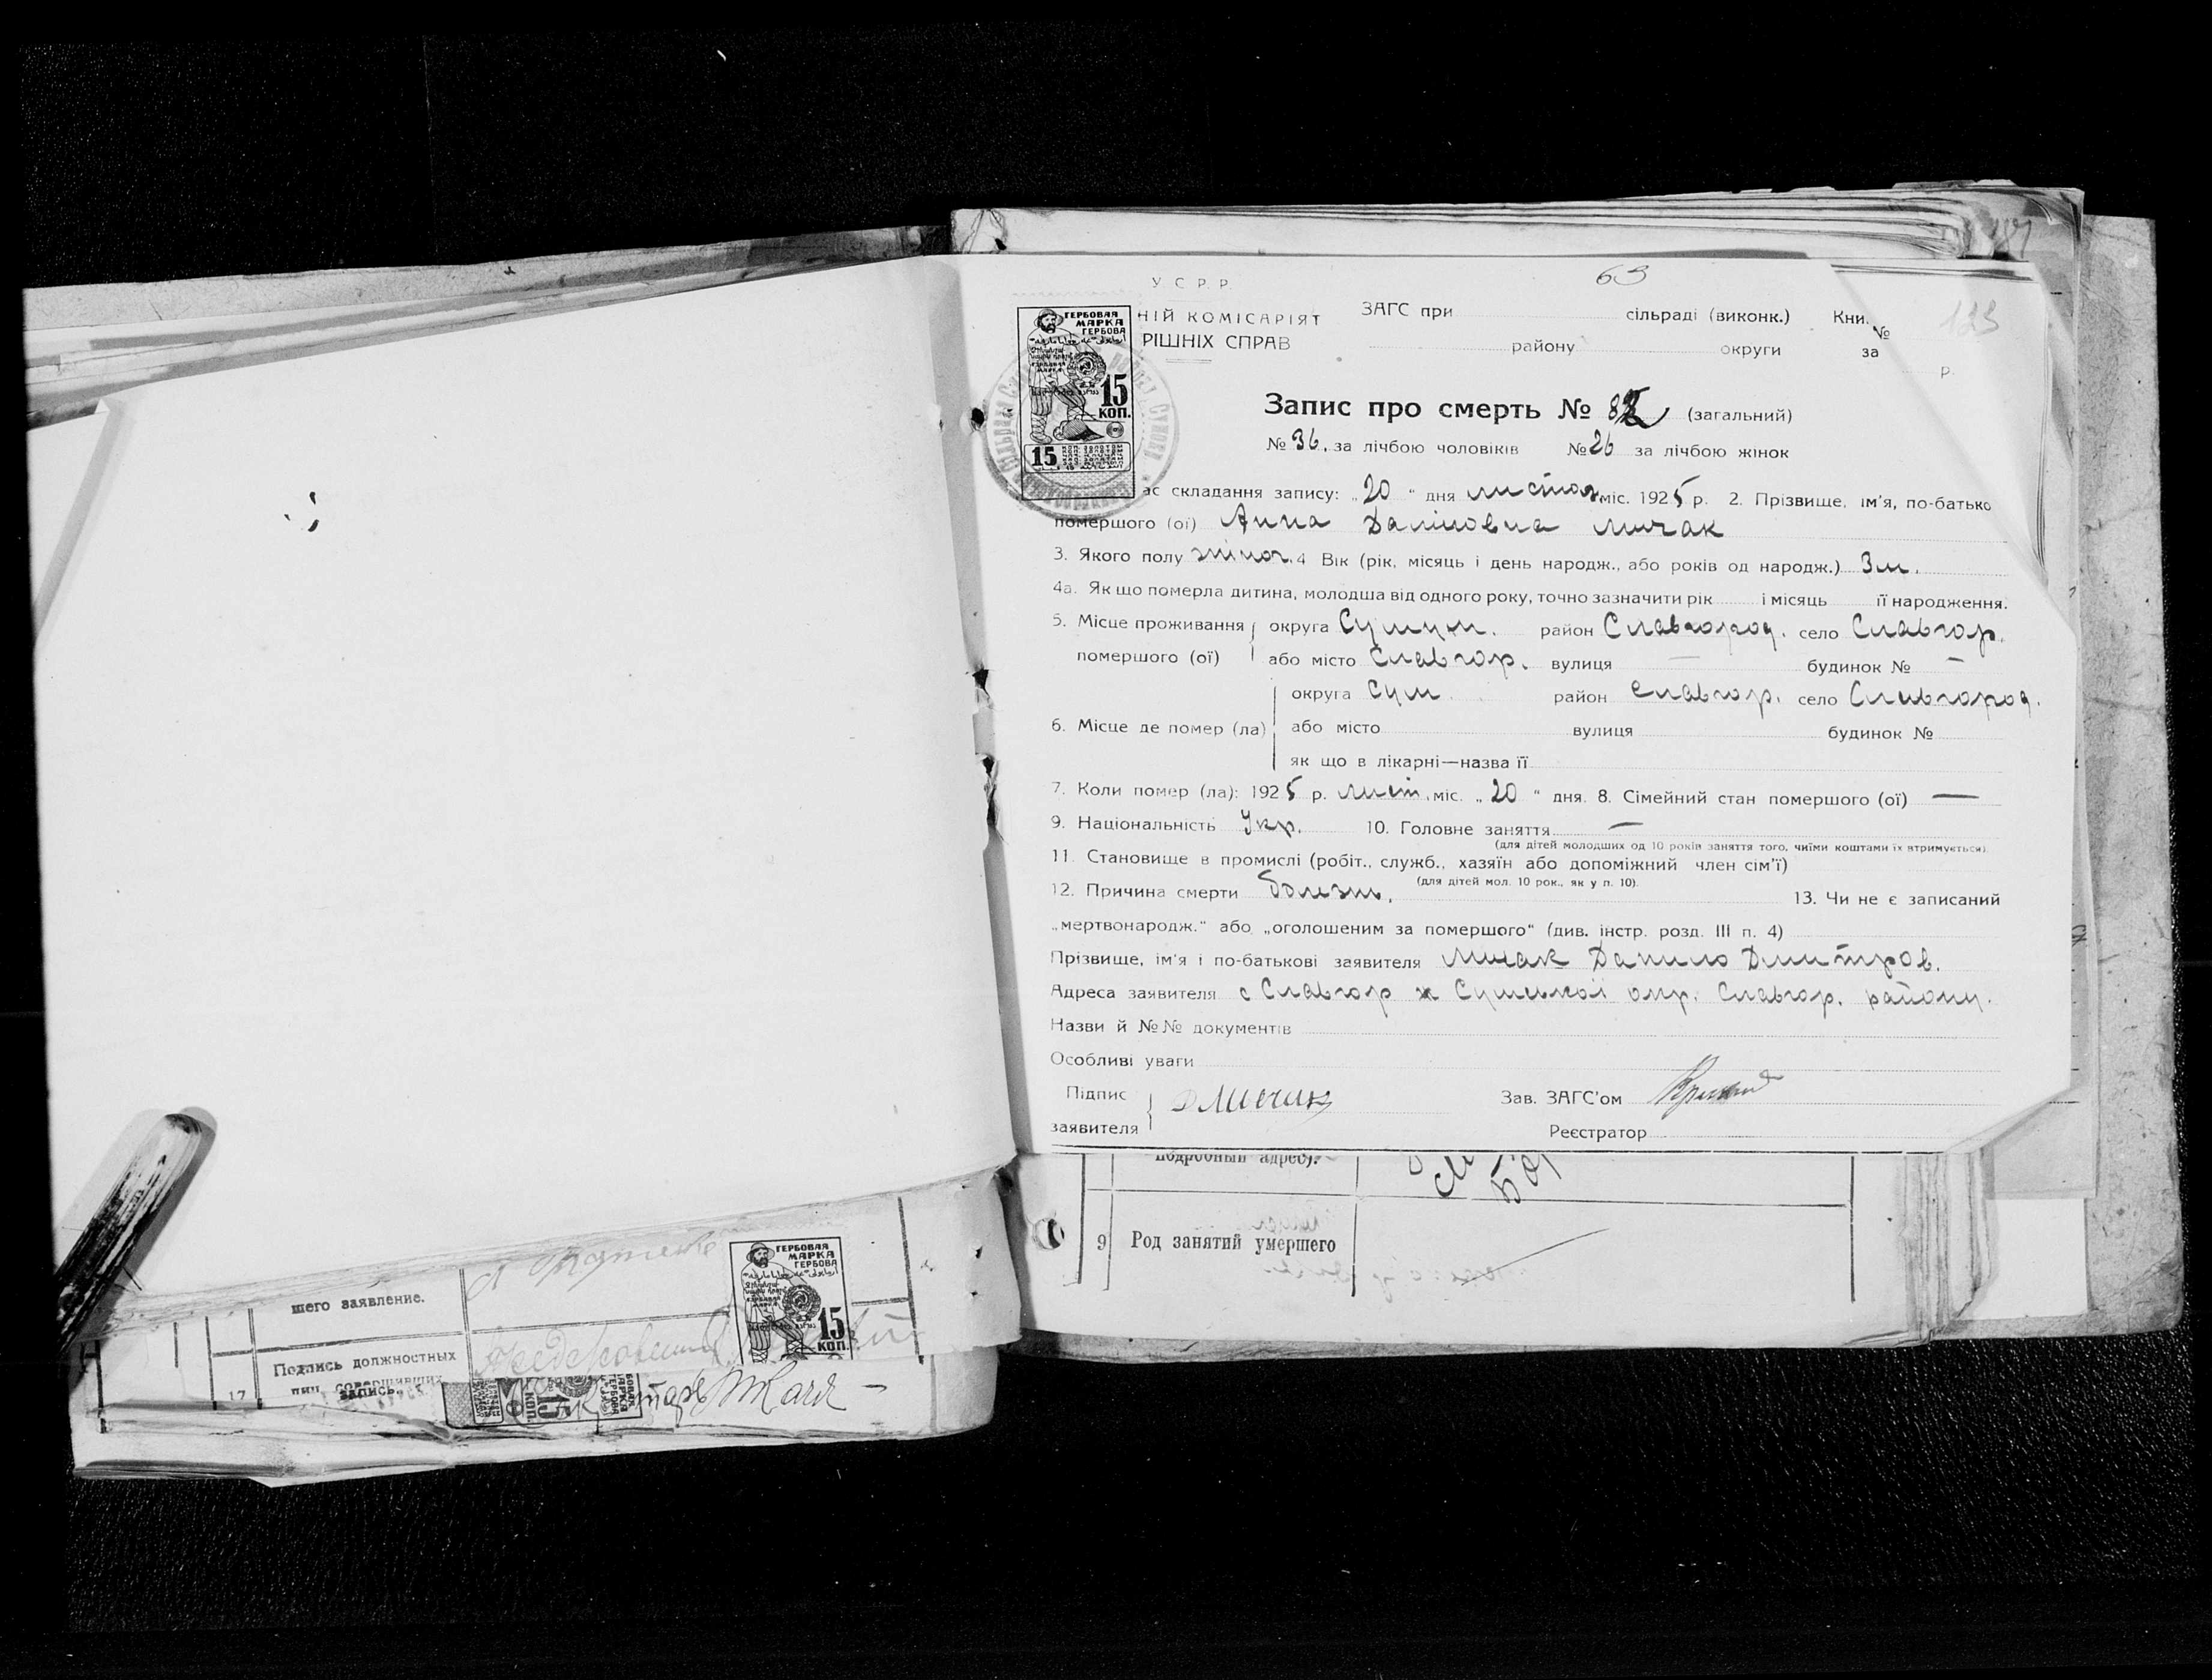 63
У. С. Р. Р.
НІЙ КОМІСАРІЯТ
РІШНІХ СПРАВ
ЗАГС при сільраді (виконк.) Кни. №
123
району округи за р.
ГЕРБОВАЯ
МАРКА
ГЕРБОВА
15
КОП.
15
Запис про смерть № (загальний)
№ 36. за лічбою чоловіків № 26 за лічбою жінок
ас складання запису: „20“ дня міс. 1925 р. 2. Прізвище, ім'я, по-батько
помершого (ої) Анна Даніловна Личак
3. Якого полу жіноч. 4 Вік (рік, місяць і день народж., або років од народж.) 3 м.
4а. Як що померла дитина, молодша від одного року, точно зазначити рік і місяць її народження.
5. Місце проживання помершого (ої)
округа Сумум. район Славгород. село Славгор.
або місто Славгор. вулиця — будинок № —
6. Місце де помер (ла)
округа Сум. район Славгор. село Славгород.
або місто вулиця будинок №
як що в лікарні—назва її
7. Коли помер (ла): 1925 р. лист. міс. „20“ дня. 8. Сімейний стан помершого (ої) —
9. Національність Укр. 10. Головне заняття —
(для дітей молодших од 10 років заняття того, чиїми коштами їх втримується)
11. Становище в промислі (робіт., служб., хазяїн або допоміжний член сім'ї)
(для дітей мол. 10 рок., як у п. 10).
12. Причина смерти болезнь. 13. Чи не є записаний
„мертвонародж.“ або „оголошеним за помершого“ (див. інстр. розд. III п. 4)
Прізвище, ім'я і по-батькові заявителя Личак Данило Дмитров.
Адреса заявителя с Славгор Сумської окр. Славгор. району.
Назви й №№ документів
Особливі уваги
Підпис заявителя Д Личак
Зав. ЗАГС'ом
Реєстратор
подробный адрес).
9 Род занятий умершего
шего заявление.
17 Подпись должностных
лиц, совершивших
запись.
ГЕРБОВАЯ
МАРКА
ГЕРБОВА
15
КОП.
15
КОП.